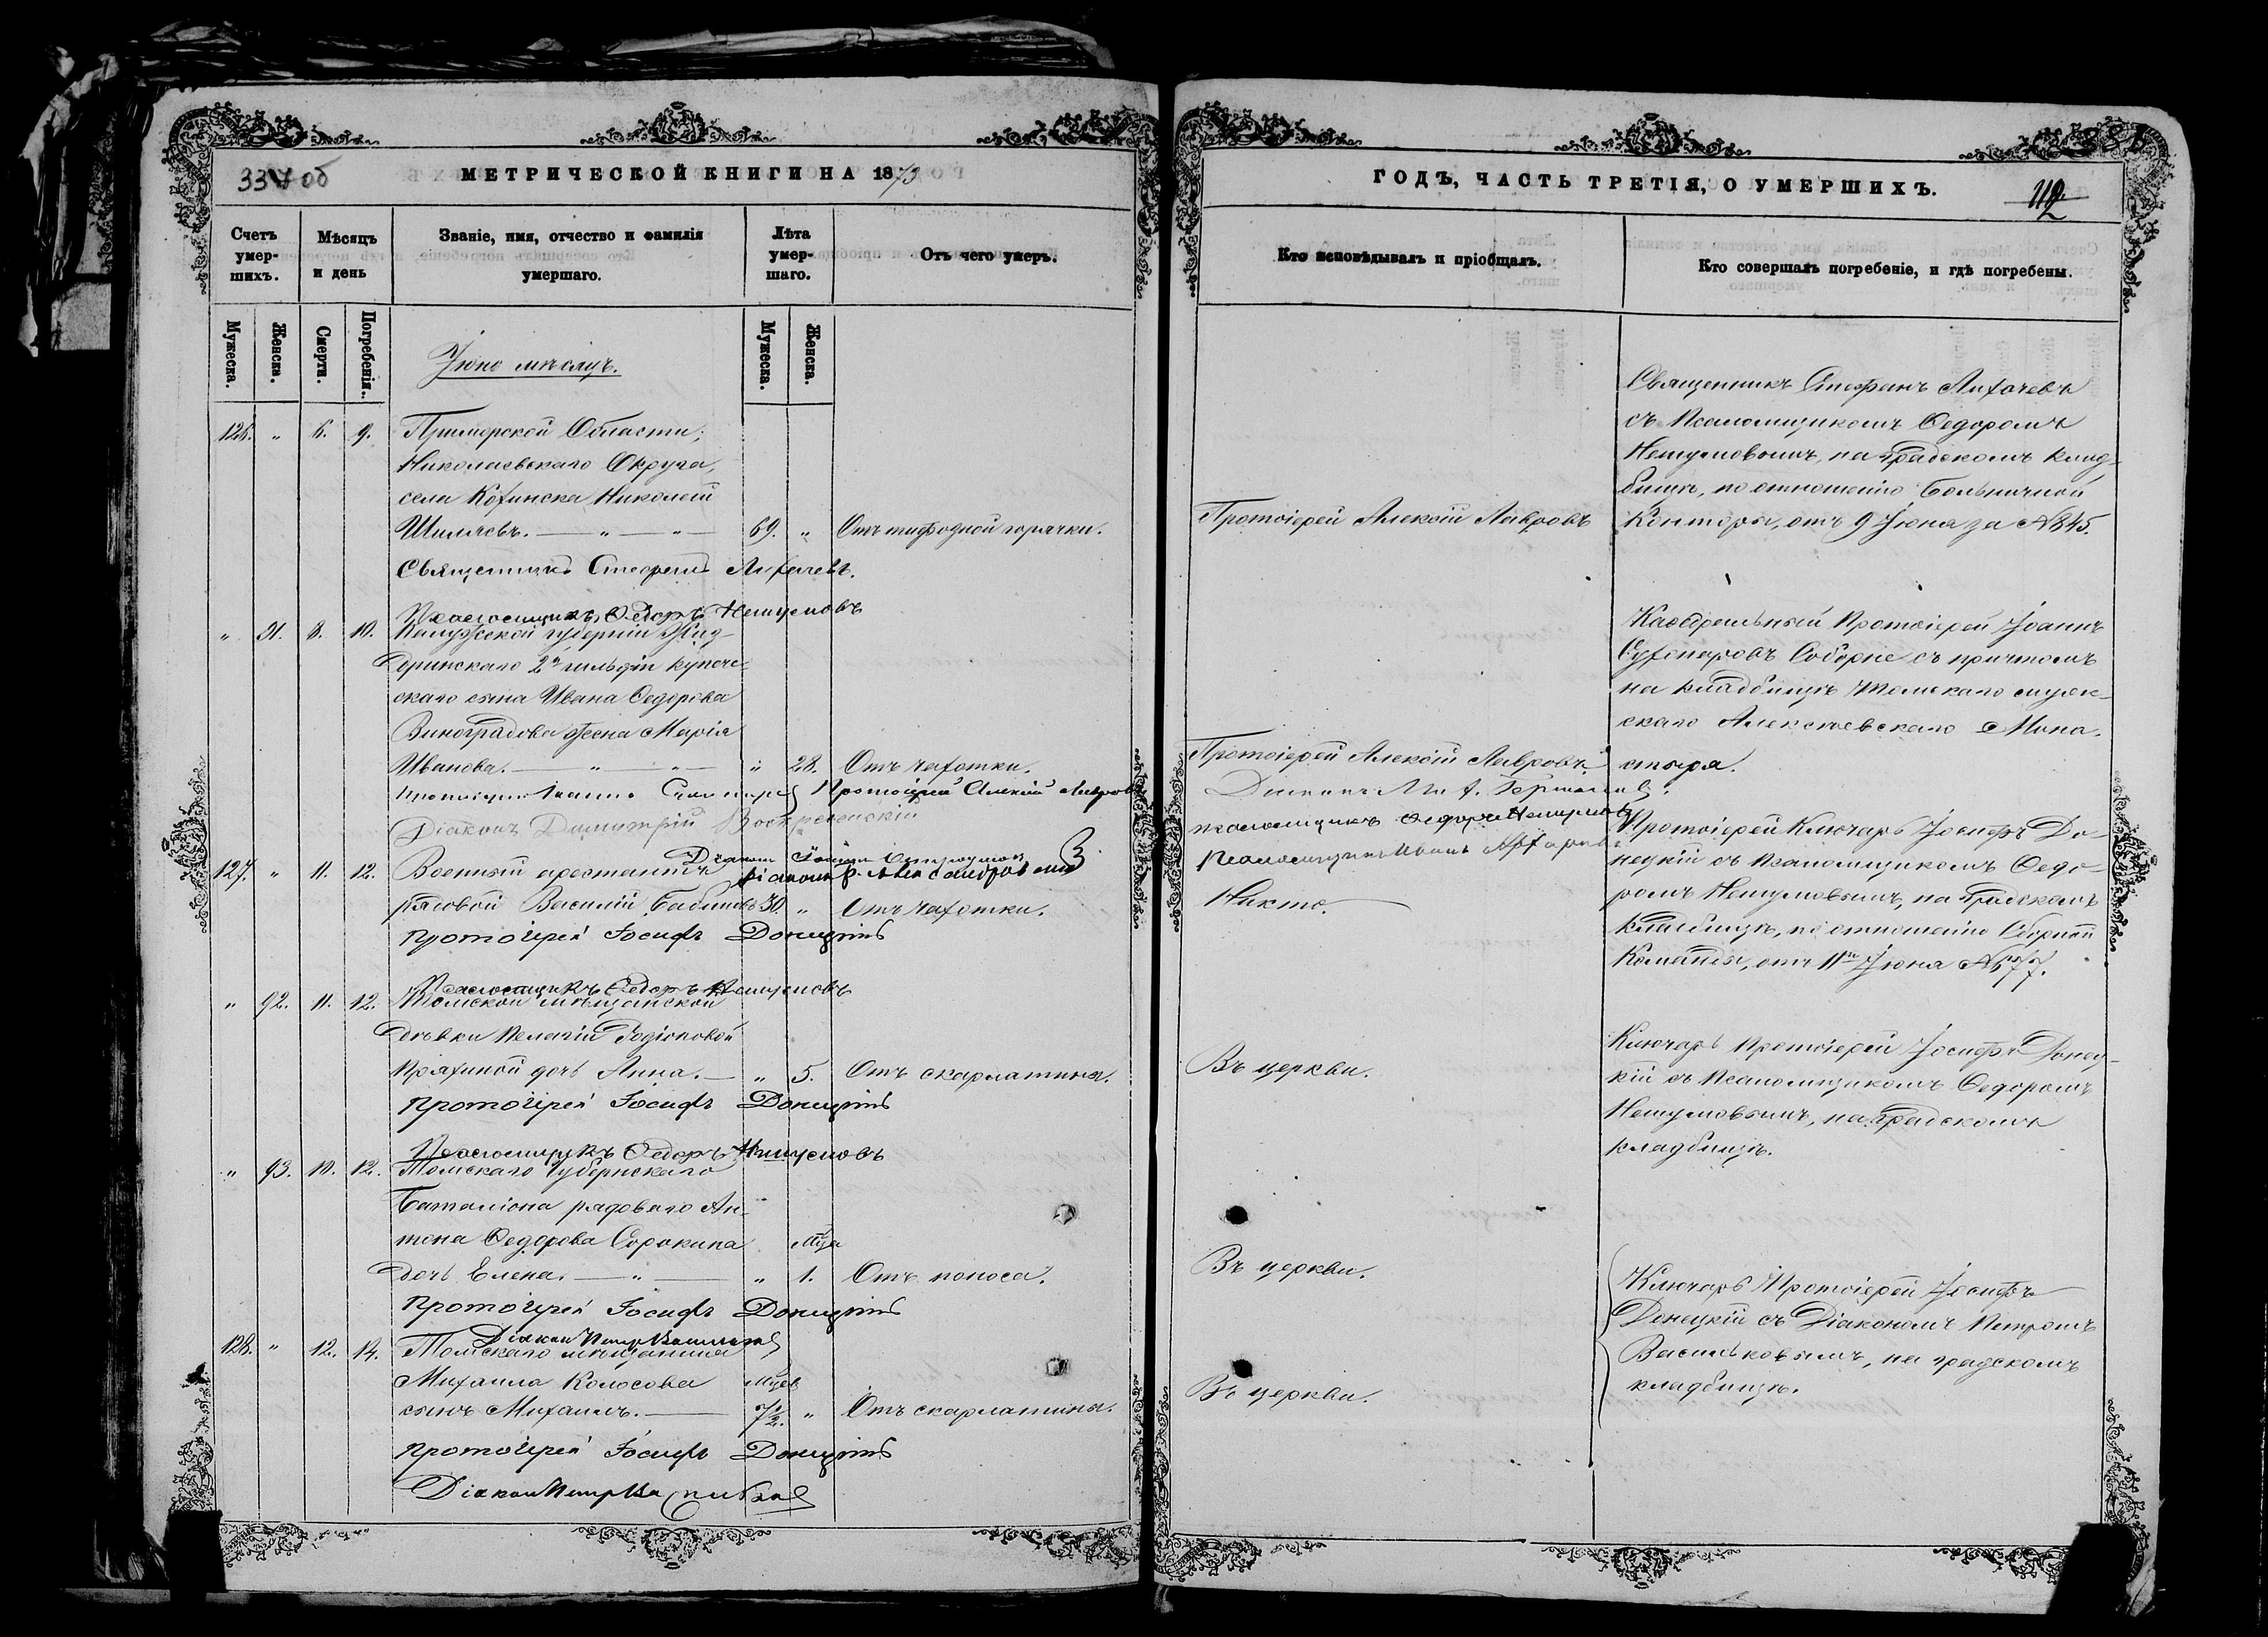 337 об
МЕТРИЧЕСКОЙ КНИГИ НА 1873
Счетъ умер-шихъ.
Мѣсяцъ и день
Званіе, имя, отчество и фамилія умершаго.
Лѣта умер-шаго.
Отъ чего умеръ.
Мужеска.
Женска.
Смерти.
Погребенія.
Мужеска.
Женска.
Іюнь мѣсяцъ.
126. " 6. 9. Приморской Области,
Николаевскаго Округа,
села Николай
69. " Отъ тифозной горячки.
Священникъ Стефанъ Лихачевъ.
Псаломщикъ Ѳедоръ
" 91. 8. 10. Калужской губерніи Жиз-
дринскаго 2й гильдіи купече-
скаго сына Ивана Ѳедорова
Виноградова жена Марія
Иванова. " " " 28. Отъ чахотки.
Протоіерей Алексій Лавровъ
Діаконъ Димитрій Воскресенскій
Діаконъ
127. " 11. 12. Военный арестантъ
рядовой Василій 30. " Отъ чахотки.
Протоіерей Іосифъ Донецкій
Псаломщикъ Ѳедоръ
" 92. 11. 12. Томской мѣщанской
дѣвки Пелагіи Родіоновой
дочь Анна. " 5. Отъ скарлатины.
Протоіерей Іосифъ Донецкій
Псаломщикъ Ѳедоръ
" 93. 10. 12. Томскаго Губернскаго
Баталіона рядоваго Ан-
тона Ѳедорова Сорокина
дочь Елена. " " 1. Отъ поноса.
Протоіерей Іосифъ Донецкій
Діаконъ Петръ Васильковъ
128. " 12. 14. Томскаго мѣщанина
Михаила Колосова
сынъ Михаилъ. 7½. " Отъ скарлатины.
Протоіерей Іосифъ Донецкій
Діаконъ Петръ Васильковъ
ГОДЪ, ЧАСТЬ ТРЕТІЯ, О УМЕРШИХЪ.
Кто исповѣдывалъ и пріобщалъ.
Кто совершалъ погребеніе, и гдѣ погребены.
Священникъ Стефанъ Лихачевъ
съ Псаломщикомъ Ѳедоромъ
на градскомъ клад-
бищѣ, по отношенію Больничной
Протоіерей Алексій Лавровъ
Конторы, отъ 9 Іюня за № 845.
Каѳедральный Протоіерей Іоаннъ
Соборне съ причтомъ
на кладбищѣ Томскаго муж-
скаго Алексѣевскаго Мона-
Протоіерей Алексій Лавровъ.
стыря.
Псаломщикъ Ѳедоръ
Псаломщикъ Иванъ
Протоіерей Ключарь Іосифъ До-
нецкій съ Псаломщикомъ Ѳедо-
Никто.
ромъ на градскомъ
кладбищѣ, по отношенію Сборной
Команды, отъ 11го Іюня №
Ключарь Протоіерей Іосифъ Донец-
Въ церкви.
кій съ Псаломщикомъ Ѳедоромъ
на градскомъ
кладбищѣ.
Въ церкви.
Ключарь Протоіерей Іосифъ
Донецкій съ Діакономъ Петромъ
Васильковымъ, на градскомъ
Въ церкви.
кладбищѣ.